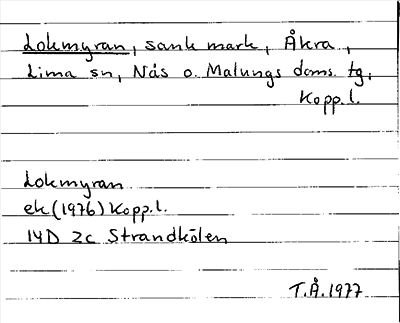 Lokmyran, sank mark, Åkra,
Lima sn, Nås o. Malungs doms. tg,
Kopp.l.
Lokmyran
ek (1976) Kopp.l.
14D 2c Strandkölen
T.Å. 1977